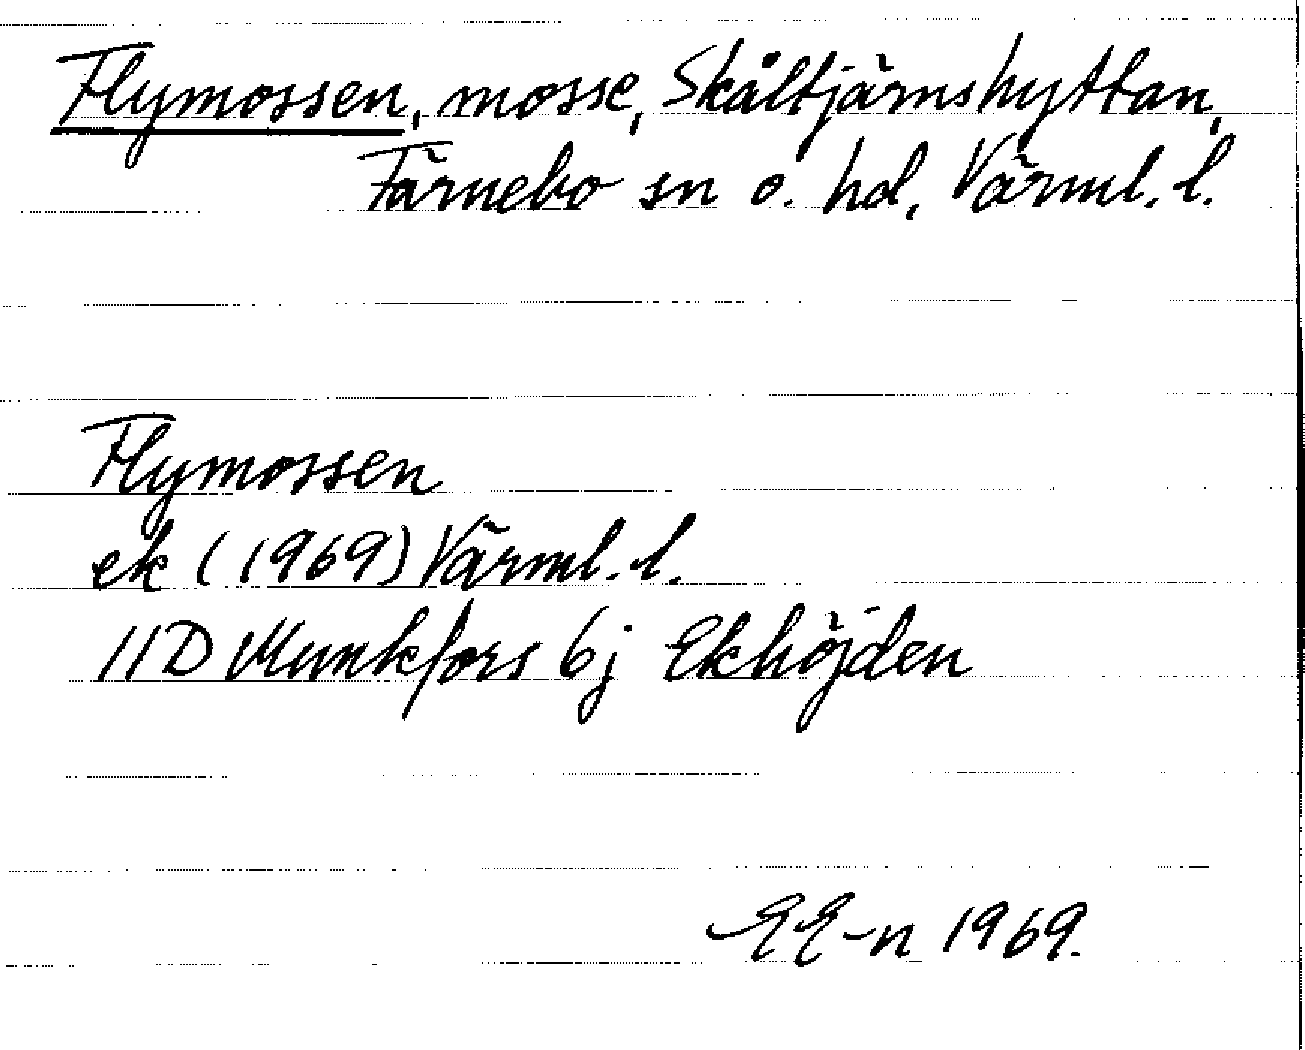 Flymossen, mosse, Skåltjärnshyttan,
Färnebo sn o. hd, Värml. l.
Flymossen
ek (1969) Värml. l.
11D Munkfors 6j Ekhöjden
EE-n 1969.